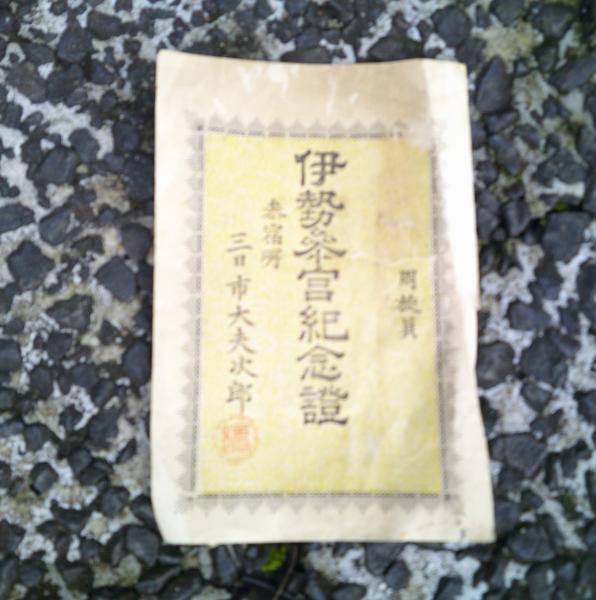 伊勢参宮紀念證
参宿所
三日市大夫次郎